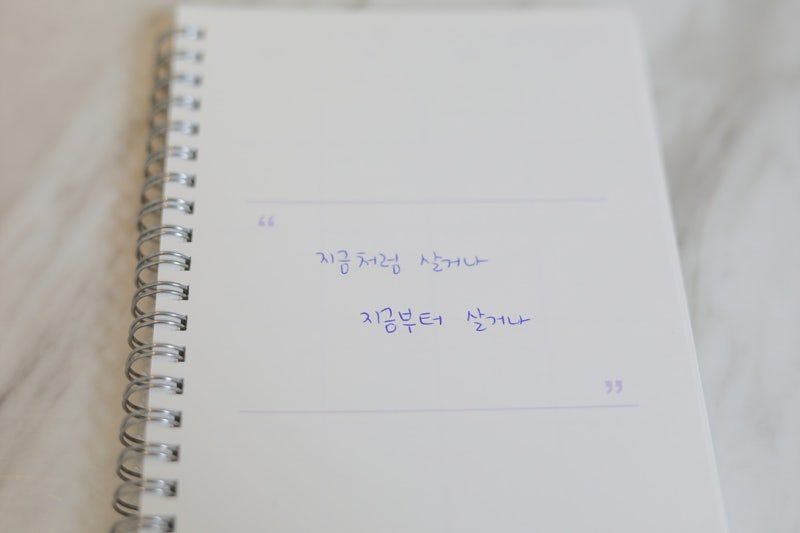 “
지금처럼 살거나
지금부터 살거나
”